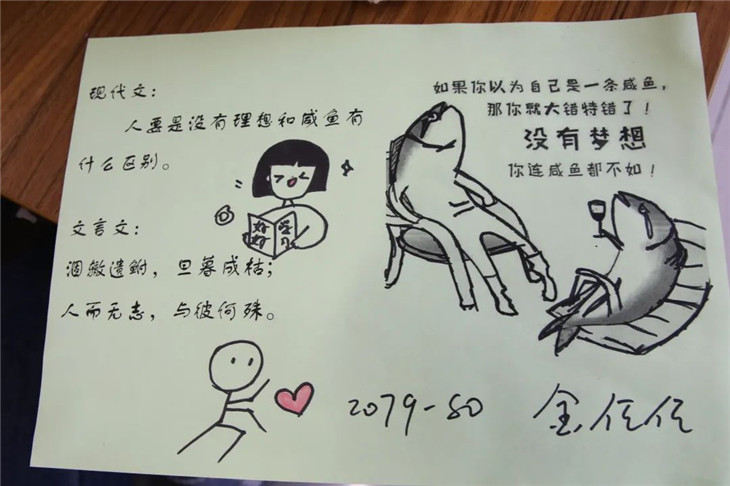 现代文：
人要是没有理想和咸鱼有
什么区别。
文言文：
涸辙遗鲋，旦暮成枯；
人而无志，与彼何殊。
好好
学习
如果你以为自己是一条咸鱼，
那你就大错特错了！
没有梦想
你连咸鱼都不如！
2079-80